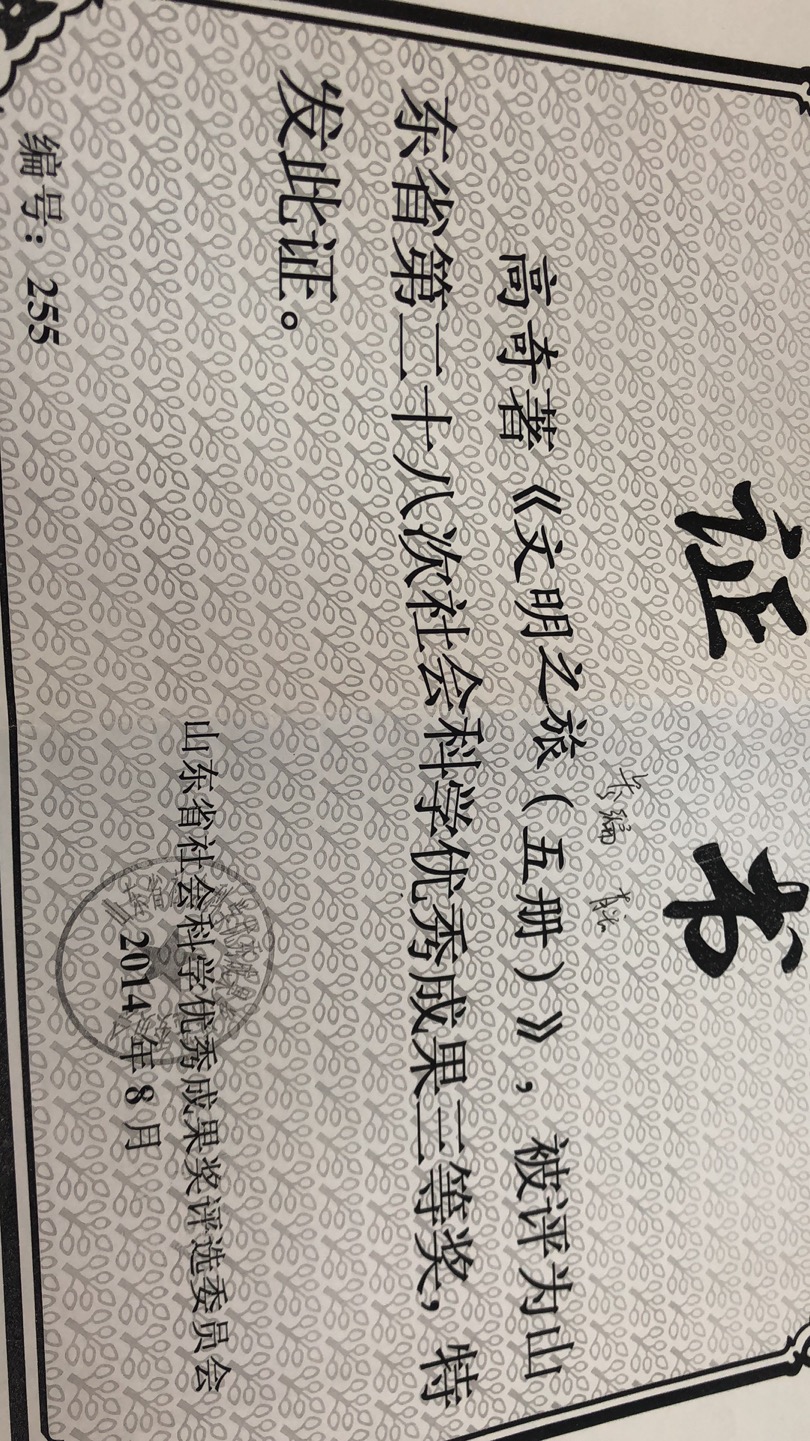 证 书
高奇著《文明之旅（五册）》，被评为山
东省第二十八次社会科学优秀成果三等奖，特
发此证。
山东省社会科学优秀成果奖评选委员会
2014 年 8 月
编号：255